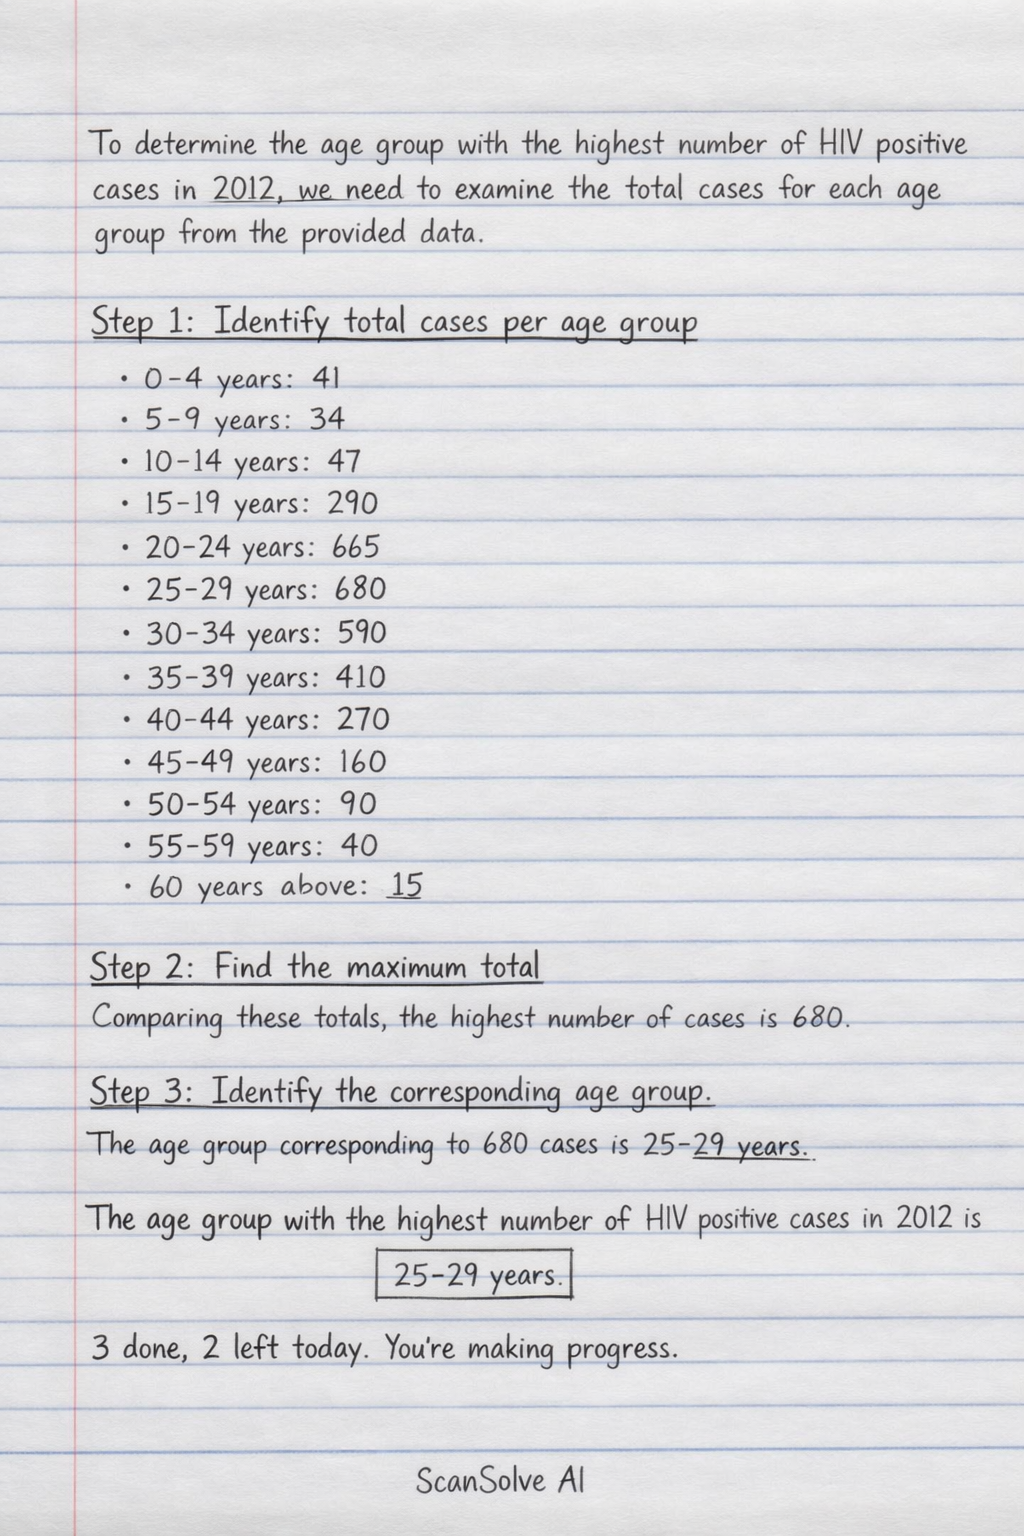 To determine the age group with the highest number of HIV positive
cases in 2012, we need to examine the total cases for each age
group from the provided data.
Step 1: Identify total cases per age group
• 0-4 years: 41
• 5-9 years: 34
• 10-14 years: 47
• 15-19 years: 290
• 20-24 years: 665
• 25-29 years: 680
• 30-34 years: 590
• 35-39 years: 410
• 40-44 years: 270
• 45-49 years: 160
• 50-54 years: 90
• 55-59 years: 40
• 60 years above: 15
Step 2: Find the maximum total
Comparing these totals, the highest number of cases is 680.
Step 3: Identify the corresponding age group.
The age group corresponding to 680 cases is 25-29 years.
The age group with the highest number of HIV positive cases in 2012 is
25-29 years.
3 done, 2 left today. You're making progress.
ScanSolve AI